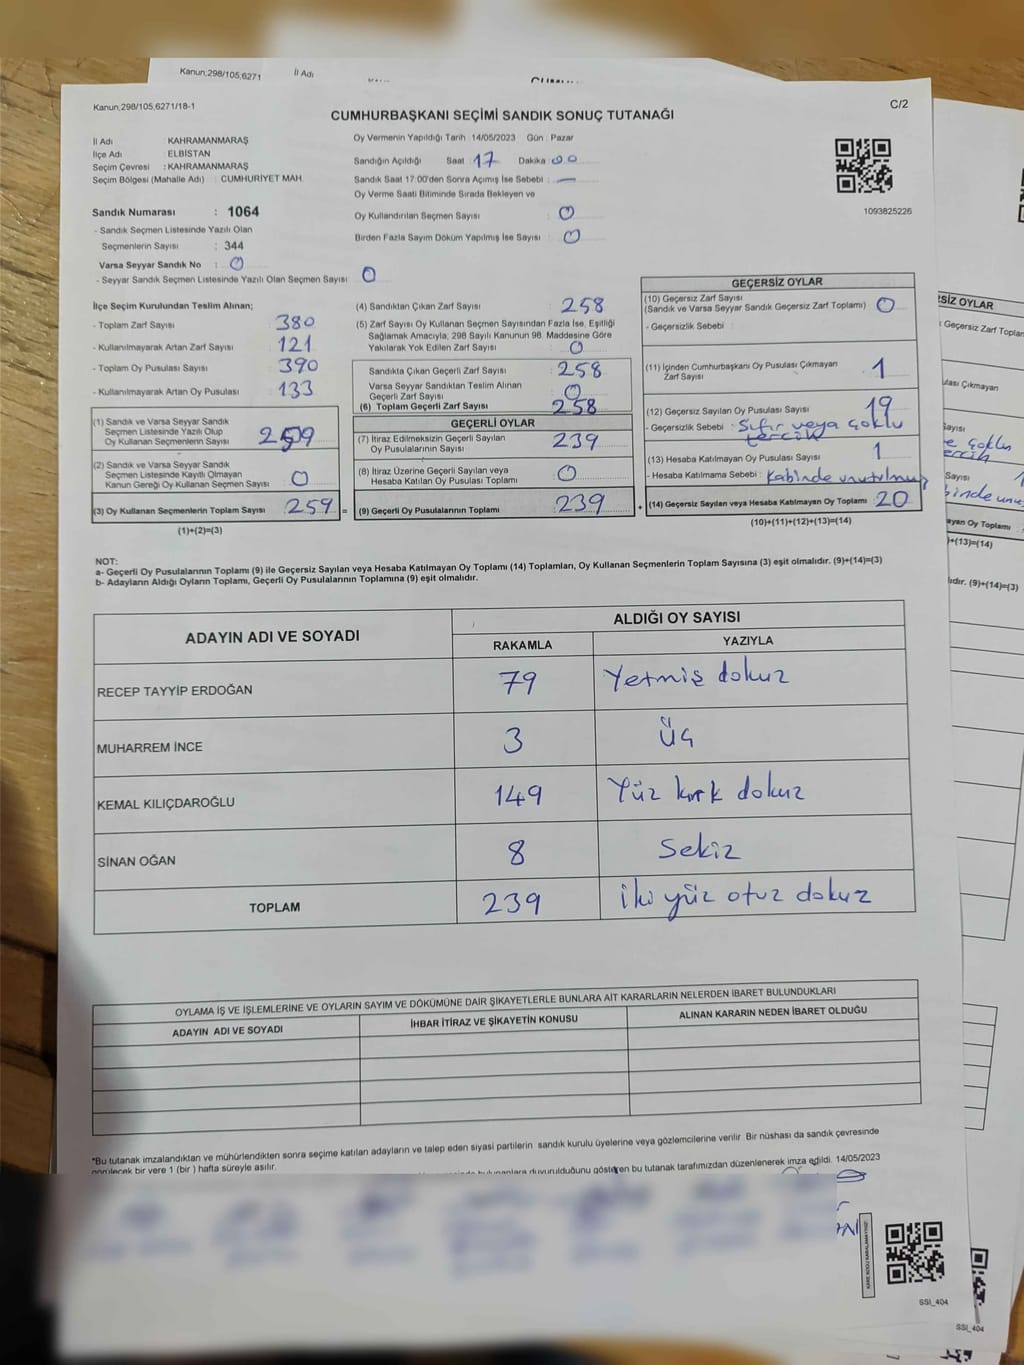 Kanun;298/105,6271
İl Adı
Kanun;298/105,6271/18-1
C/2
CUMHURBAŞKANI SEÇİMİ SANDIK SONUÇ TUTANAĞI
İl Adı : KAHRAMANMARAŞ
İlçe Adı : ELBİSTAN
Seçim Çevresi : KAHRAMANMARAŞ
Seçim Bölgesi (Mahalle Adı) : CUMHURİYET MAH.
Oy Vermenin Yapıldığı Tarih 14/05/2023 Gün : Pazar
Sandığın Açıldığı Saat 17 Dakika : 00
Sandık Saat 17:00'den Sonra Açımış İse Sebebi : —
Oy Verme Saati Bitiminde Sırada Bekleyen ve
Oy Kullandırılan Seçmen Sayısı : 0
Birden Fazla Sayım Döküm Yapılmış İse Sayısı : 0
1093825226
Sandık Numarası : 1064
- Sandık Seçmen Listesinde Yazılı Olan
Seçmenlerin Sayısı : 344
Varsa Seyyar Sandık No : 0
- Seyyar Sandık Seçmen Listesinde Yazılı Olan Seçmen Sayısı : 0
İlçe Seçim Kurulundan Teslim Alınan;
- Toplam Zarf Sayısı : 380
- Kullanılmayarak Artan Zarf Sayısı : 121
- Toplam Oy Pusulası Sayısı : 390
- Kullanılmayarak Artan Oy Pusulası : 133
(1) Sandık ve Varsa Seyyar Sandık
Seçmen Listesinde Yazılı Olup
Oy Kullanan Seçmenlerin Sayısı : 259
(2) Sandık ve Varsa Seyyar Sandık
Seçmen Listesinde Kayıtlı Olmayan
Kanun Gereği Oy Kullanan Seçmen Sayısı : 0
(3) Oy Kullanan Seçmenlerin Toplam Sayısı : 259 =
(1)+(2)=(3)
(4) Sandıktan Çıkan Zarf Sayısı : 258
(5) Zarf Sayısı Oy Kullanan Seçmen Sayısından Fazla İse, Eşitliği
Sağlamak Amacıyla, 298 Sayılı Kanunun 98. Maddesine Göre
Yakılarak Yok Edilen Zarf Sayısı : 0
Sandıkta Çıkan Geçerli Zarf Sayısı : 258
Varsa Seyyar Sandıktan Teslim Alınan
Geçerli Zarf Sayısı : 0
(6) Toplam Geçerli Zarf Sayısı : 258
GEÇERLİ OYLAR
(7) İtiraz Edilmeksizin Geçerli Sayılan
Oy Pusulalarının Sayısı : 239
(8) İtiraz Üzerine Geçerli Sayılan veya
Hesaba Katılan Oy Pusulası Toplamı : 0
(9) Geçerli Oy Pusulalarının Toplamı : 239 +
GEÇERSİZ OYLAR
(10) Geçersiz Zarf Sayısı
(Sandık ve Varsa Seyyar Sandık Geçersiz Zarf Toplamı) : 0
- Geçersizlik Sebebi :
(11) İçinden Cumhurbaşkanı Oy Pusulası Çıkmayan
Zarf Sayısı : 1
(12) Geçersiz Sayılan Oy Pusulası Sayısı : 19
- Geçersizlik Sebebi : Sıfır veya çoklu
tercih
(13) Hesaba Katılmayan Oy Pusulası Sayısı : 1
- Hesaba Katılmama Sebebi : Kabinde unutulmuş
(14) Geçersiz Sayılan veya Hesaba Katılmayan Oy Toplamı : 20
(10)+(11)+(12)+(13)=(14)
NOT:
a- Geçerli Oy Pusulalarının Toplamı (9) ile Geçersiz Sayılan veya Hesaba Katılmayan Oy Toplamı (14) Toplamları, Oy Kullanan Seçmenlerin Toplam Sayısına (3) eşit olmalıdır. (9)+(14)=(3)
b- Adayların Aldığı Oyların Toplamı, Geçerli Oy Pusulalarının Toplamına (9) eşit olmalıdır.
ADAYIN ADI VE SOYADI
ALDIĞI OY SAYISI
RAKAMLA YAZIYLA
RECEP TAYYİP ERDOĞAN 79 Yetmiş dokuz
MUHARREM İNCE 3 Üç
KEMAL KILIÇDAROĞLU 149 Yüz kırk dokuz
SİNAN OĞAN 8 Sekiz
TOPLAM 239 iki yüz otuz dokuz
OYLAMA İŞ VE İŞLEMLERİNE VE OYLARIN SAYIM VE DÖKÜMÜNE DAİR ŞİKAYETLERLE BUNLARA AİT KARARLARIN NELERDEN İBARET BULUNDUKLARI
ADAYIN ADI VE SOYADI İHBAR İTİRAZ VE ŞİKAYETİN KONUSU ALINAN KARARIN NEDEN İBARET OLDUĞU
*Bu tutanak imzalandıktan ve mühürlendikten sonra seçime katılan adayların ve talep eden siyasi partilerin sandık kurulu üyelerine veya gözlemcilerine verilir. Bir nüshası da sandık çevresinde
görülecek bir yere 1 (bir ) hafta süreyle asılır.
duyurulduğunu gösteren bu tutanak tarafımızdan düzenlenerek imza edildi. 14/05/2023
SSİ_404
SSİ_404